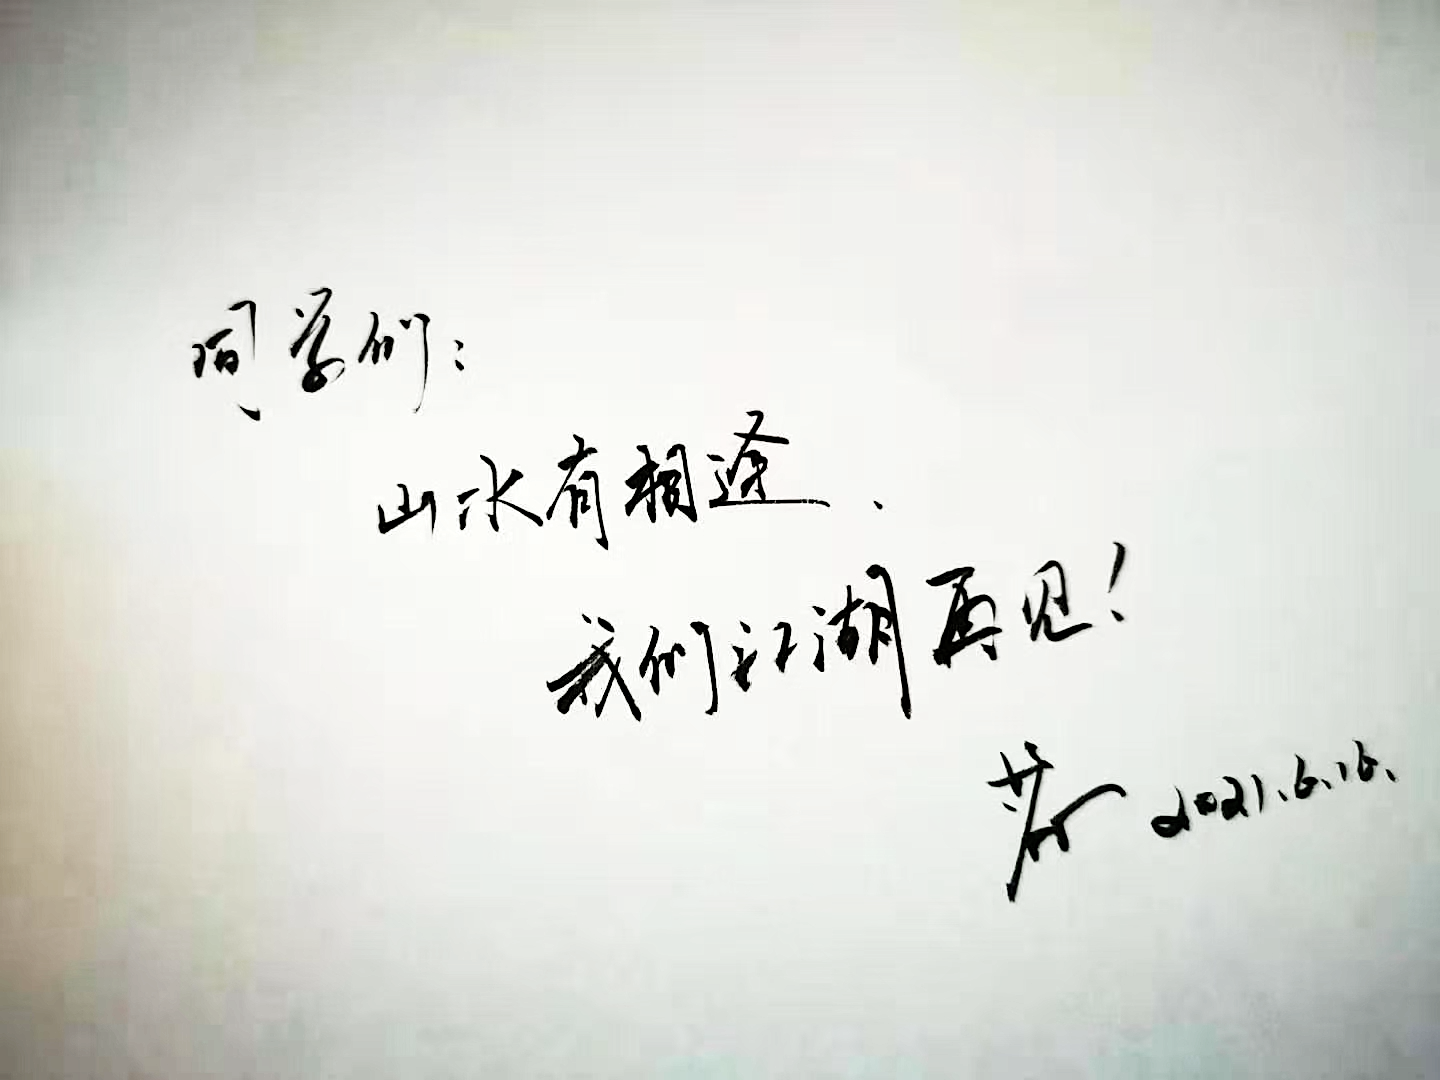 同学们：
山水有相逢、
我们江湖再见！
2021.6.16.